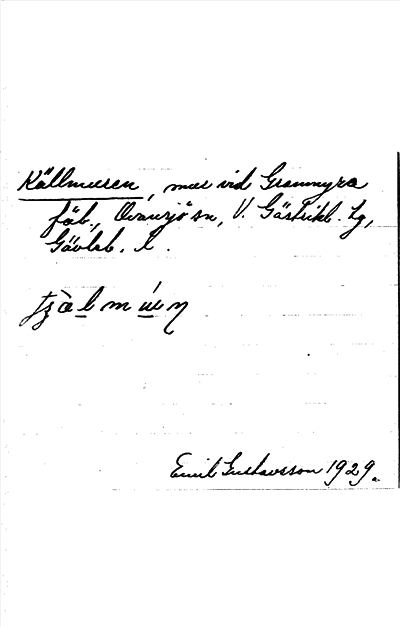 Källmuren, mur vid Grannnyra
fäb., Ovansjö sn, V. Gästrikl. tg,
Gävleb. l.
Emil Gustavsson 1929.